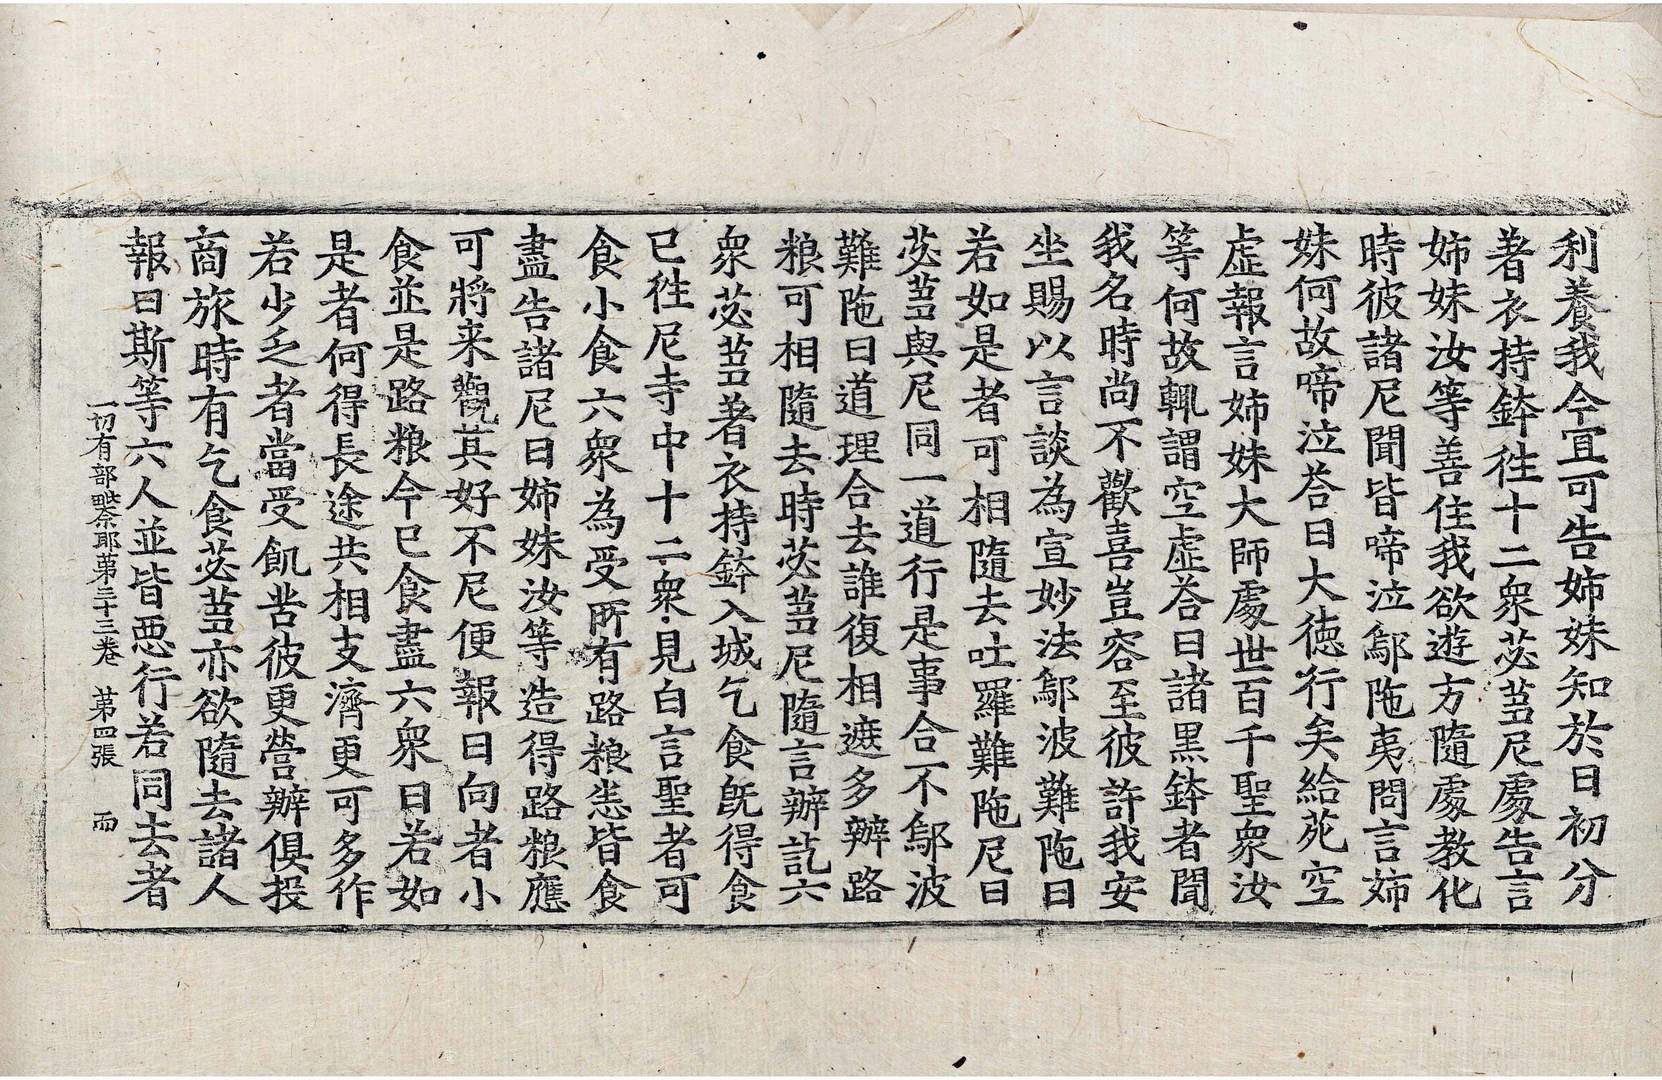 利養我今冝可告姉妹知於日初分
著衣持鉢徃十二衆苾芻尼䖏告言
姉妹汝等善住我欲遊方隨䖏教化
時彼諸尼聞皆啼泣鄔陁夷問言姉
妹何故啼泣荅曰大徳行矣給苑空
虛報言姉妹大師䖏世百千聖衆汝
等何故輒謂空虛荅曰諸黒鉢者聞
我名時尚不歡喜豈容至彼許我安
坐賜以言談為宣妙法鄔波難陁曰
若如是者可相隨去吐羅難陁尼曰
苾芻與尼同一道行是事合不鄔波
難陁曰道理合去誰復相遮多辦路
粮可相隨去時苾芻尼隨言辦訖六
衆苾芻著衣持鉢入城乞食旣得食
已徃尼寺中十二衆見白言聖者可
食小食六衆為受所有路粮恙皆食
盡告諸尼曰姉妹汝等造得路粮應
可將来觀其好不尼便報曰向者小
食並是路粮今已食盡六衆曰若如
是者何得長途共相支濟更可多作
若少乏者當受飢苦彼更營辦俱投
商旅時有乞食苾芻亦欲隨去諸人
報曰斯等六人並皆惡行若同去者
一切有部毗奈耶第三十三卷　第四張　而